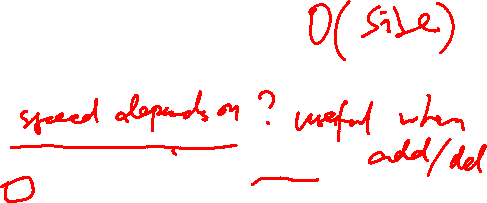 O(size)
speed depends on ? useful when
add/del